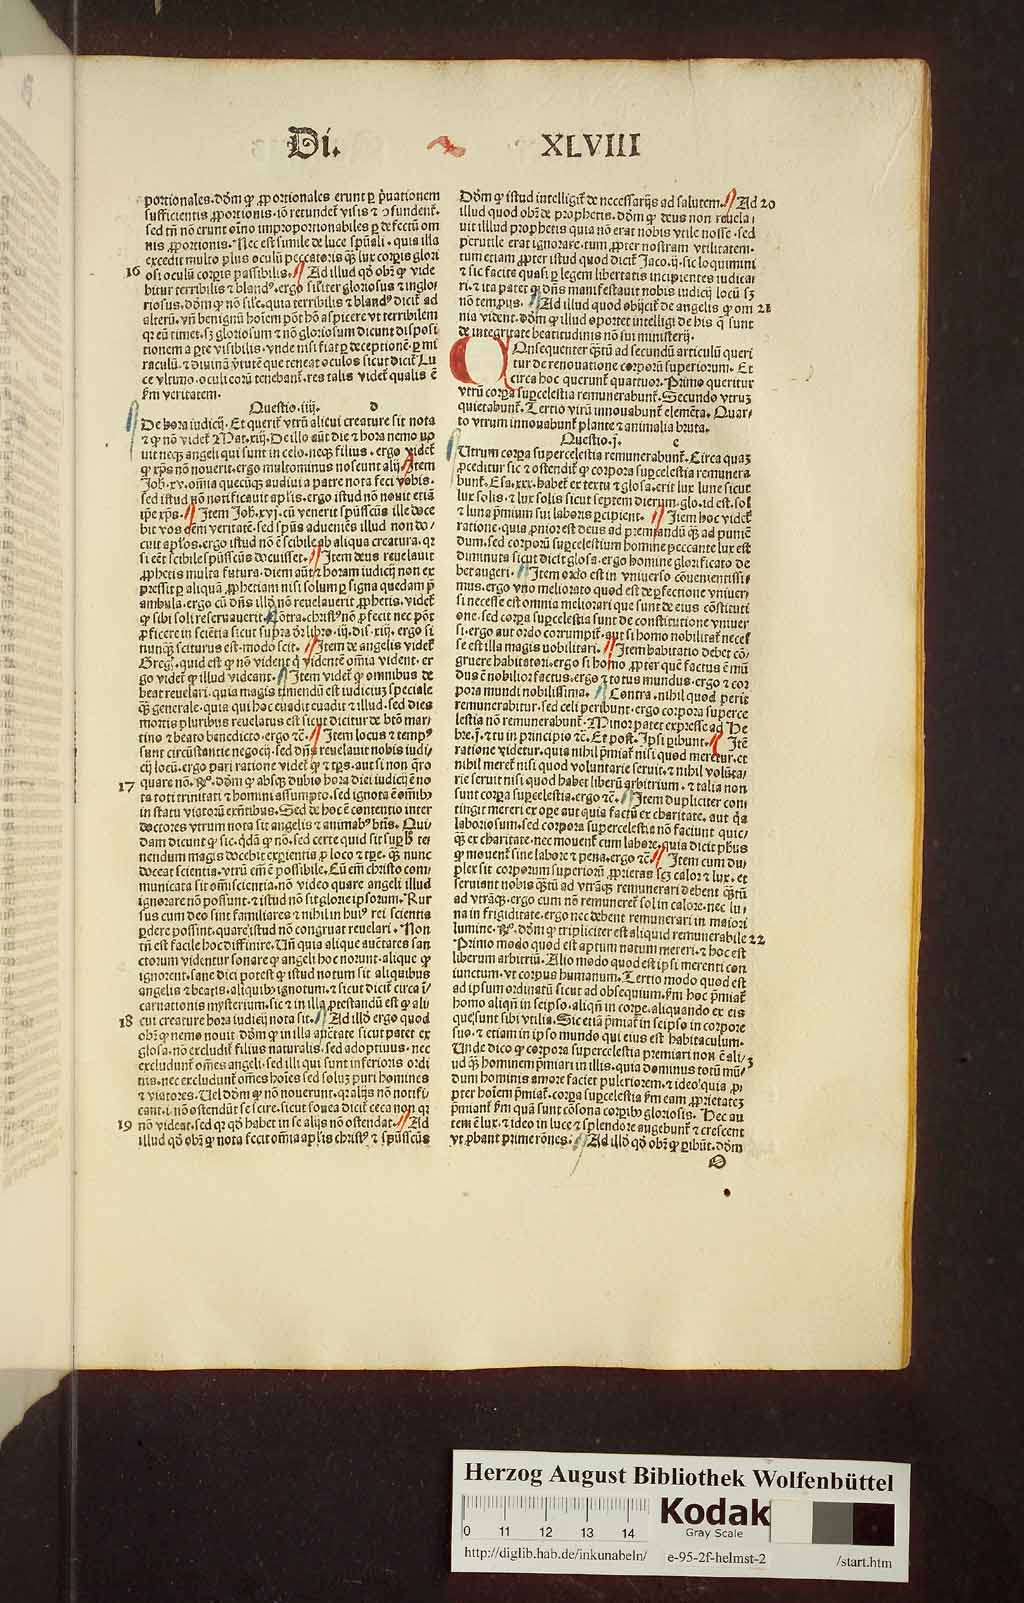 Di. XLVIII
portionales. dōm ꝙ ꝓportionales erunt ꝑ p̄uationem
sufficientis ꝓportionis. iō retundet̄ visis ⁊ ↄfundent̄.
sed tn̄ nō erunt oīno improportionabiles ꝑ defectū om
nis ꝓportionis. Nec est simile de luce spūali. quia illa
excedit multo plus oculū peccatoris qꝫ lux corꝑis glori
16 osi oculū corꝑis passibilis. Ad illud qd̄ obꝰ ꝙ vide
bitur terribilis ⁊ blandꝰ. ergo siliter gloriosus ⁊ inglo/
riosus. dōm ꝙ nō sile. quia terribilis ⁊ blandꝰ dicit̄ ad
alterū. vn̄ benignū hoīem pōt hō aspicere vt terribilem
qꝛ eū timet. sꝫ gloriosum ⁊ nō gloriosum dicunt disposi
tionem a ꝑte visibilis. vnde nisi fiat ꝑ deceptionē. ꝑ mi
raculū ⁊ diuinā v̄tutē que teneat oculos sicut dicit̄ Lu
ce vltimo. oculi eorū tenebant̄. res talis videt̄ qualis ē
fm veritatem.
Questio. iiij. d
De hora iudicij. Et querit̄ vtrū alicui creature sit nota
⁊ ꝙ nō videt̄ Mat. xiij. De illo aūt die ⁊ hora nemo no
uit neqꝫ angeli qui sunt in celo. neqꝫ filius. ergo videt̄
ꝙ xp̄s nō nouerit. ergo multominus noscunt alij. Item
Joh. xv. oīmia quecūqꝫ audiui a patre nota feci vobis.
sed istud nō notificauit aplis. ergo istud nō nouit etiā
ip̄e xp̄s. Item Joh. xvj. cū venerit spūsscūs ille doce
bit vos oem̄ veritatē. sed spūs adueniēs illud non do/
cuit aplos. ergo istud nō ē scibile ab aliqua creatura. qꝛ
si eēt scibile spūsscūs docuisset. Item deus reuelauit
ꝓphetis multa futura. diem aūt ⁊ horam iudicij non ex
pressit ꝑ aliquā ꝓphetiam nisi solum ꝑ signa quedam p̄
ambula. ergo cū dn̄s illd̄ nō reuelauerit ꝓphetis. videt̄
ꝙ sibi soli reseruauerit. Cōtra. christꝰ nō ꝓfecit nec pōt
ꝓficere in sciētia sicut supra dr̄ libro. iij. dis. xiij. ergo si
nunqꝫ sciturus est. modo scit. Item de angelis videt̄
Greg. quid est ꝙ nō vident q̄ videntē oīmia vident. er
go videt̄ ꝙ illud videant. Item videt̄ ꝙ omnibus de
beat reuelari. quia magis timendū est iudiciuꝫ speciale
qꝫ generale. quia qui hoc euadit euadit ⁊ illud. sed dies
mortis pluribus reuelatus est sicut dicitur de btō mar/
tino ⁊ beato benedicto. ergo ⁊c̄. Item locus ⁊ tempꝰ
sunt circūstātie negocij. sed dn̄s reuelauit nobis iudi/
cij locū. ergo pari ratione videt̄ ꝙ ⁊ tp̄s. aut si non q̄ro
17 quare nō. Rꝰ. dōm ꝙ absqꝫ dubio hora diei iudicij ē no
ta toti trinitati ⁊ homini assumpto. sed ignota ē om̄ibꝰ
in statu viatorū exn̄tibus. Sed de hoc ē contentio inter
doctores vtrum nota sit angelis ⁊ animabꝰ btīs. Qui/
dam dicunt ꝙ sic. qdā ꝙ nō. sed certe quid sit suꝑ te/
nendum magis docebit exꝑientia ꝓ loco ⁊ tꝑe. qꝫ nunc
doceat scientia. vtrū em̄ ē possibile. Cū em̄ christo com/
municata sit om̄iscientia. nō video quare angeli illud
ignorare nō possunt. ⁊ istud nō sit glorie ipsorum. Rur
sus cum deo sint familiares ⁊ nihil in huiꝰ rei scientia
ꝑdere possint. quare istud nō congruat reuelari. Non
tn̄ est facile hoc diffinire. Un̄ quia alique auctates san
ctorum videntur sonare ꝙ angeli hoc norunt. alique ꝙ
ignorent. sane dici potest ꝙ istud notum sit aliquibus
angelis ⁊ beatis. aliquibꝰ ignotum. ⁊ sicut dicit̄ circa ī/
carnationis mysterium. sic ⁊ in illa ꝓtestandū est ꝙ ali/
18 cui creature hora iudicij nota sit. Ad illd̄ ergo quod
obꝰ ꝙ nemo nouit dōm ꝙ in illa auctate sicut patet ex
glosa. nō excludit̄ filius naturalis. sed adoptiuus. nec
excludunt̄ om̄es angeli. sed illi qui sunt inferioris ordi
nis. nec excludunt̄ om̄es hoīes sed soluꝫ puri homines
⁊ viatores. Uel dōm ꝙ nō nouerunt. qꝛ alijs nō notifi/
cant. i. nō ostendūt se scire. sicut fouea dicit̄ ceca non qꝛ
19 nō videat. sed qꝛ qd̄ habet in se alijs nō ostendat. Ad
illud qd̄ obꝰ ꝙ nota fecit oīmia aplis christꝰ ⁊ spūsscūs
Dōm ꝙ istud intelligit̄ de necessarijs ad salutem. Ad 20
illud quod obꝰ de prophetis. dōm ꝙ deus non reuela/
uit illud prophetis quia nō erat nobis vtile nosse. sed
perutile erat ignorare. tum ꝓpter nostram vtilitatem.
tum etiam ꝓpter istud quod dicit̄ Jaco. ij. sic loquimini
⁊ sic facite quasi ꝑ legem libertatis incipientes iudica/
ri. ⁊ ita patet ꝙ dn̄s manifestauit nobis iudicij locū sꝫ
nō tempus. Ad illud quod obijcit̄ de angelis ꝙ om 21
nia vident. dōm ꝙ illud oportet intelligi de his q̄ sunt
de integritate beatitudinis nō sui ministerij.
COnsequenter qstū ad secundū articulū queri
tur de renouatione corporū superiorum. Et
circa hoc querunt̄ quattuor. Primo queritur
vtrū corꝑa suꝑcelestia remunerabunt̄. Secundo vtruꝫ
quietabunt̄. Tertio vtrū innouabunt̄ elemēta. Quar/
to vtrum innouabunt̄ plante ⁊ animalia bruta.
Questio. j. e
Utrum corꝑa supercelestia remunerabunt̄. Circa quaꝫ
ꝓceditur sic ⁊ ostendit̄ ꝙ corpora suꝑcelestia remunera
bunt̄. Esa. xxx. habet̄ ex textu ⁊ glosa. erit lux lune sicut
lux solis. ⁊ lux solis sicut septem dierum. glo. id est. sol
⁊ luna p̄mium sui laboris ꝑcipient. Item hoc videt̄
ratione. quia ꝓnior est deus ad premiandū qꝫ ad puniē
dum. sed corporū suꝑcelestium homine peccante lux est
diminuta sicut dicit glosa. ergo homine glorificato de
bet augeri. Item ordo est in vniuerso cōuenientissi/
mus. ergo vno meliorato quod est de ꝑfectione vniuer/
si necesse est omnia meliorari que sunt de eius cōstituti
one. sed corpa suꝑcelestia sunt de constitutione vniuer
si. ergo aut ordo corrumpit̄. aut si homo nobilitat̄ necel
se est illa magis nobilitari. Item habitatio debet cō/
gruere habitatori. ergo si homo ꝓpter quē factus ē mū
dus ē nobilior factus. ergo ⁊ totus mundus. ergo ⁊ cor
pora mundi nobilissima. Contra. nihil quod perit
remunerabitur. sed celi peribunt. ergo corpora superce
lestia nō remunerabunt̄. Minor patet expresse ad He
bre. j. ⁊ tu in principio ⁊c̄. Et post. Ipsi ꝑibunt. Itē
ratione videtur. quia nihil p̄miat̄ nisi quod meretur. et
nihil meret̄ nisi quod voluntarie seruit. ⁊ nihil volūta/
rie seruit nisi quod habet liberū arbitrium. ⁊ talia non
sunt corꝑa suꝑcelestia. ergo ⁊c̄. Item dupliciter con/
tingit mereri ex oꝑe aut quia factū ex charitate. aut q̄a
laboriosum. sed corpora suꝑcelestia nō faciunt quic/
qꝫ ex charitate. nec mouent̄ cum labore. quia dicit phūs
ꝙ mouent̄ sine labore ⁊ pena. ergo ⁊c̄. Item cum du/
plex sit corporum superiorū ꝓprietas sꝫ calor ⁊ lux. et
seruiant nobis qstū ad vtrāqꝫ remunerari debent qstū
ad vtrāqꝫ. ergo cum nō remuneret̄ sol in calore. nec lu/
na in frigiditate. ergo nec debent remunerari in maiori
lumine. Rꝰ. dōm ꝙ tripliciter est aliquid remunerabile 22
Primo modo quod est aptum natum mereri. ⁊ hoc est
liberum arbitriū. Alio modo quod est ipsi merenti con
iunctum. vt corpus humanum. Tertio modo quod est
ad ipsum ordinatū sicut ad obsequium. fm hoc p̄miat̄
homo aliqn̄ in seipso. aliqn̄ in corpe. aliquando ex eis
que sunt sibi vtilia. Sic etiā p̄miat̄ in seipso in corpore
suo. ⁊ etiam in ipso mundo qui eius est habitaculum.
Unde dico ꝙ corpora supercelestia premiari non ē ali/ 3
ud qꝫ hominem p̄miari in illis. quia dominus totū mū/
dum hominis amore faciet pulcriorem. ⁊ ideo quia ꝓ/
pter hoīem p̄miat̄. corꝑa suꝑcelestia fm eam ꝓprietatē
p̄miant̄ fm quā sunt cōsona corꝑibꝰ gloriosis. Hec au
tem ē lux. ⁊ ideo in luce ⁊ splendore augebunt̄ ⁊ crescent
vt ꝓbant prime rōnes. Ad illd̄ qd̄ obꝰ ꝙ ꝑibūt. dōm
Herzog August Bibliothek Wolfenbüttel
0 11 12 13 14
Kodak
Gray Scale
http://diglib.hab.de/inkunabeln/ e-95-2f-helmst-2 /start.htm